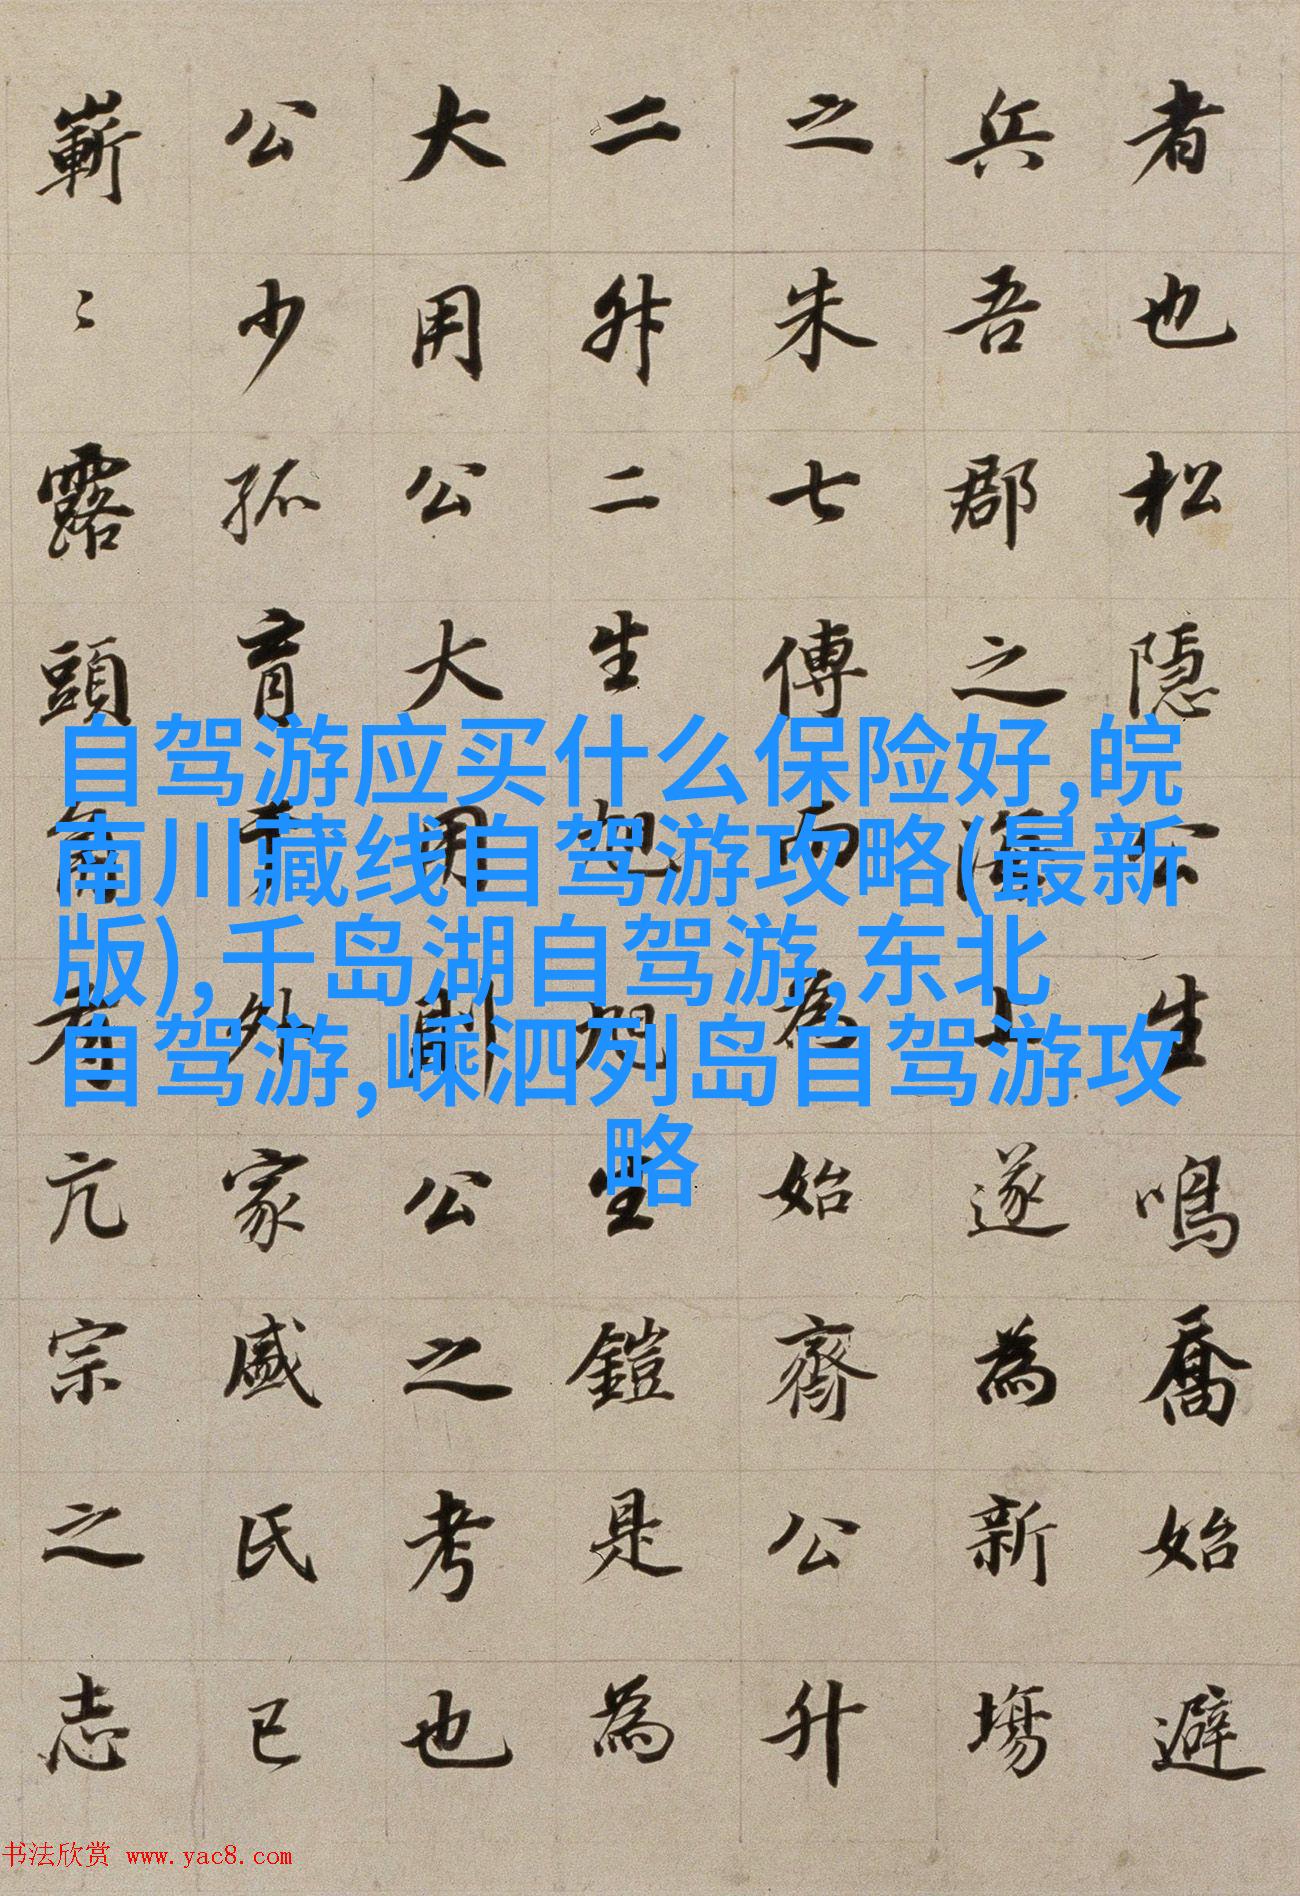 者也松隱公生鳴喬始避
兵吾郡之海上遂為新場
之朱七傅而為始齊公升
二升二生旭旭生鎧是為
大用公大用則公之考也
公少孤育於外家戚氏已
嶄〻露頭角有亢宗之志
自驾游应买什么保险好,皖
南川藏线自驾游攻略(最新
版),千岛湖自驾游,东北
自驾游,嵊泗列岛自驾游攻
略
书法欣赏 www.yac8.com